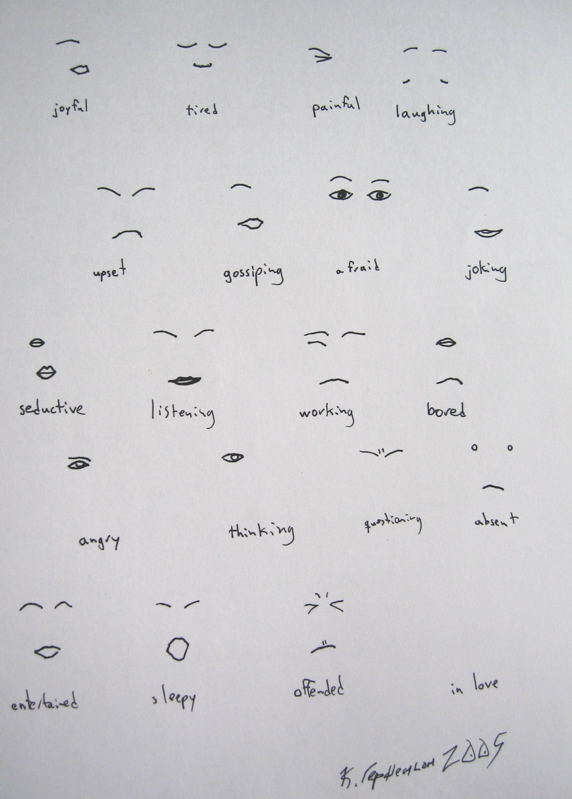 joyful tired painful laughing
upset gossiping afraid joking
seductive listening working bored
angry thinking questioning absent
entertained sleepy offended in love
2009